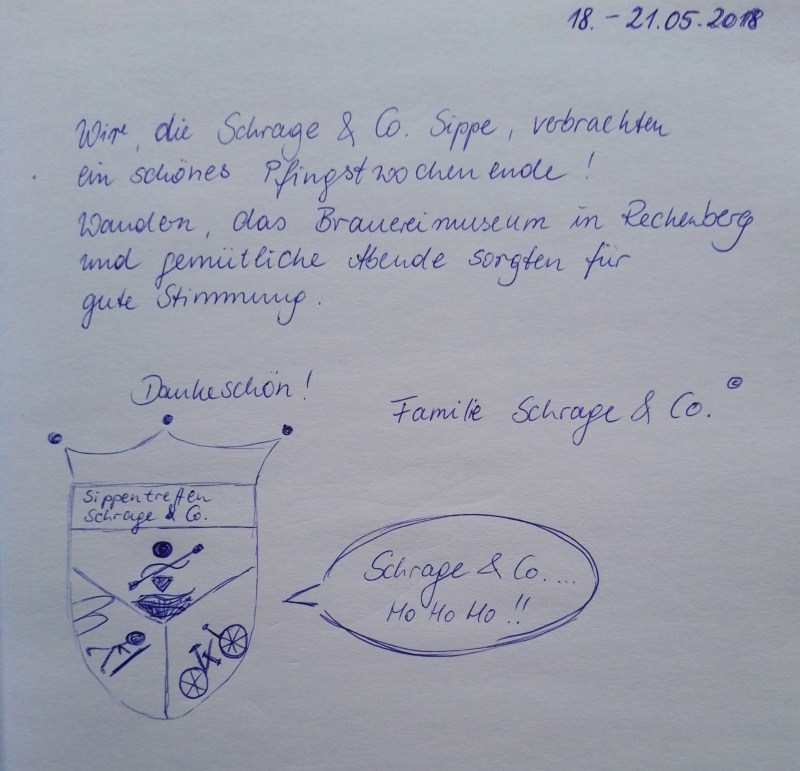 18. - 21.05.2018
Wir, die Schrage & Co. Sippe, verbrachten
ein schönes Pfingstwochenende!
Wandern, das Brauereimuseum in Rechenberg
und gemütliche Abende sorgten für
gute Stimmung.
Dankeschön!
Familie Schrage & Co. ©
Sippentreffen
Schrage & Co.
Schrage & Co. ...
Ho Ho Ho !!